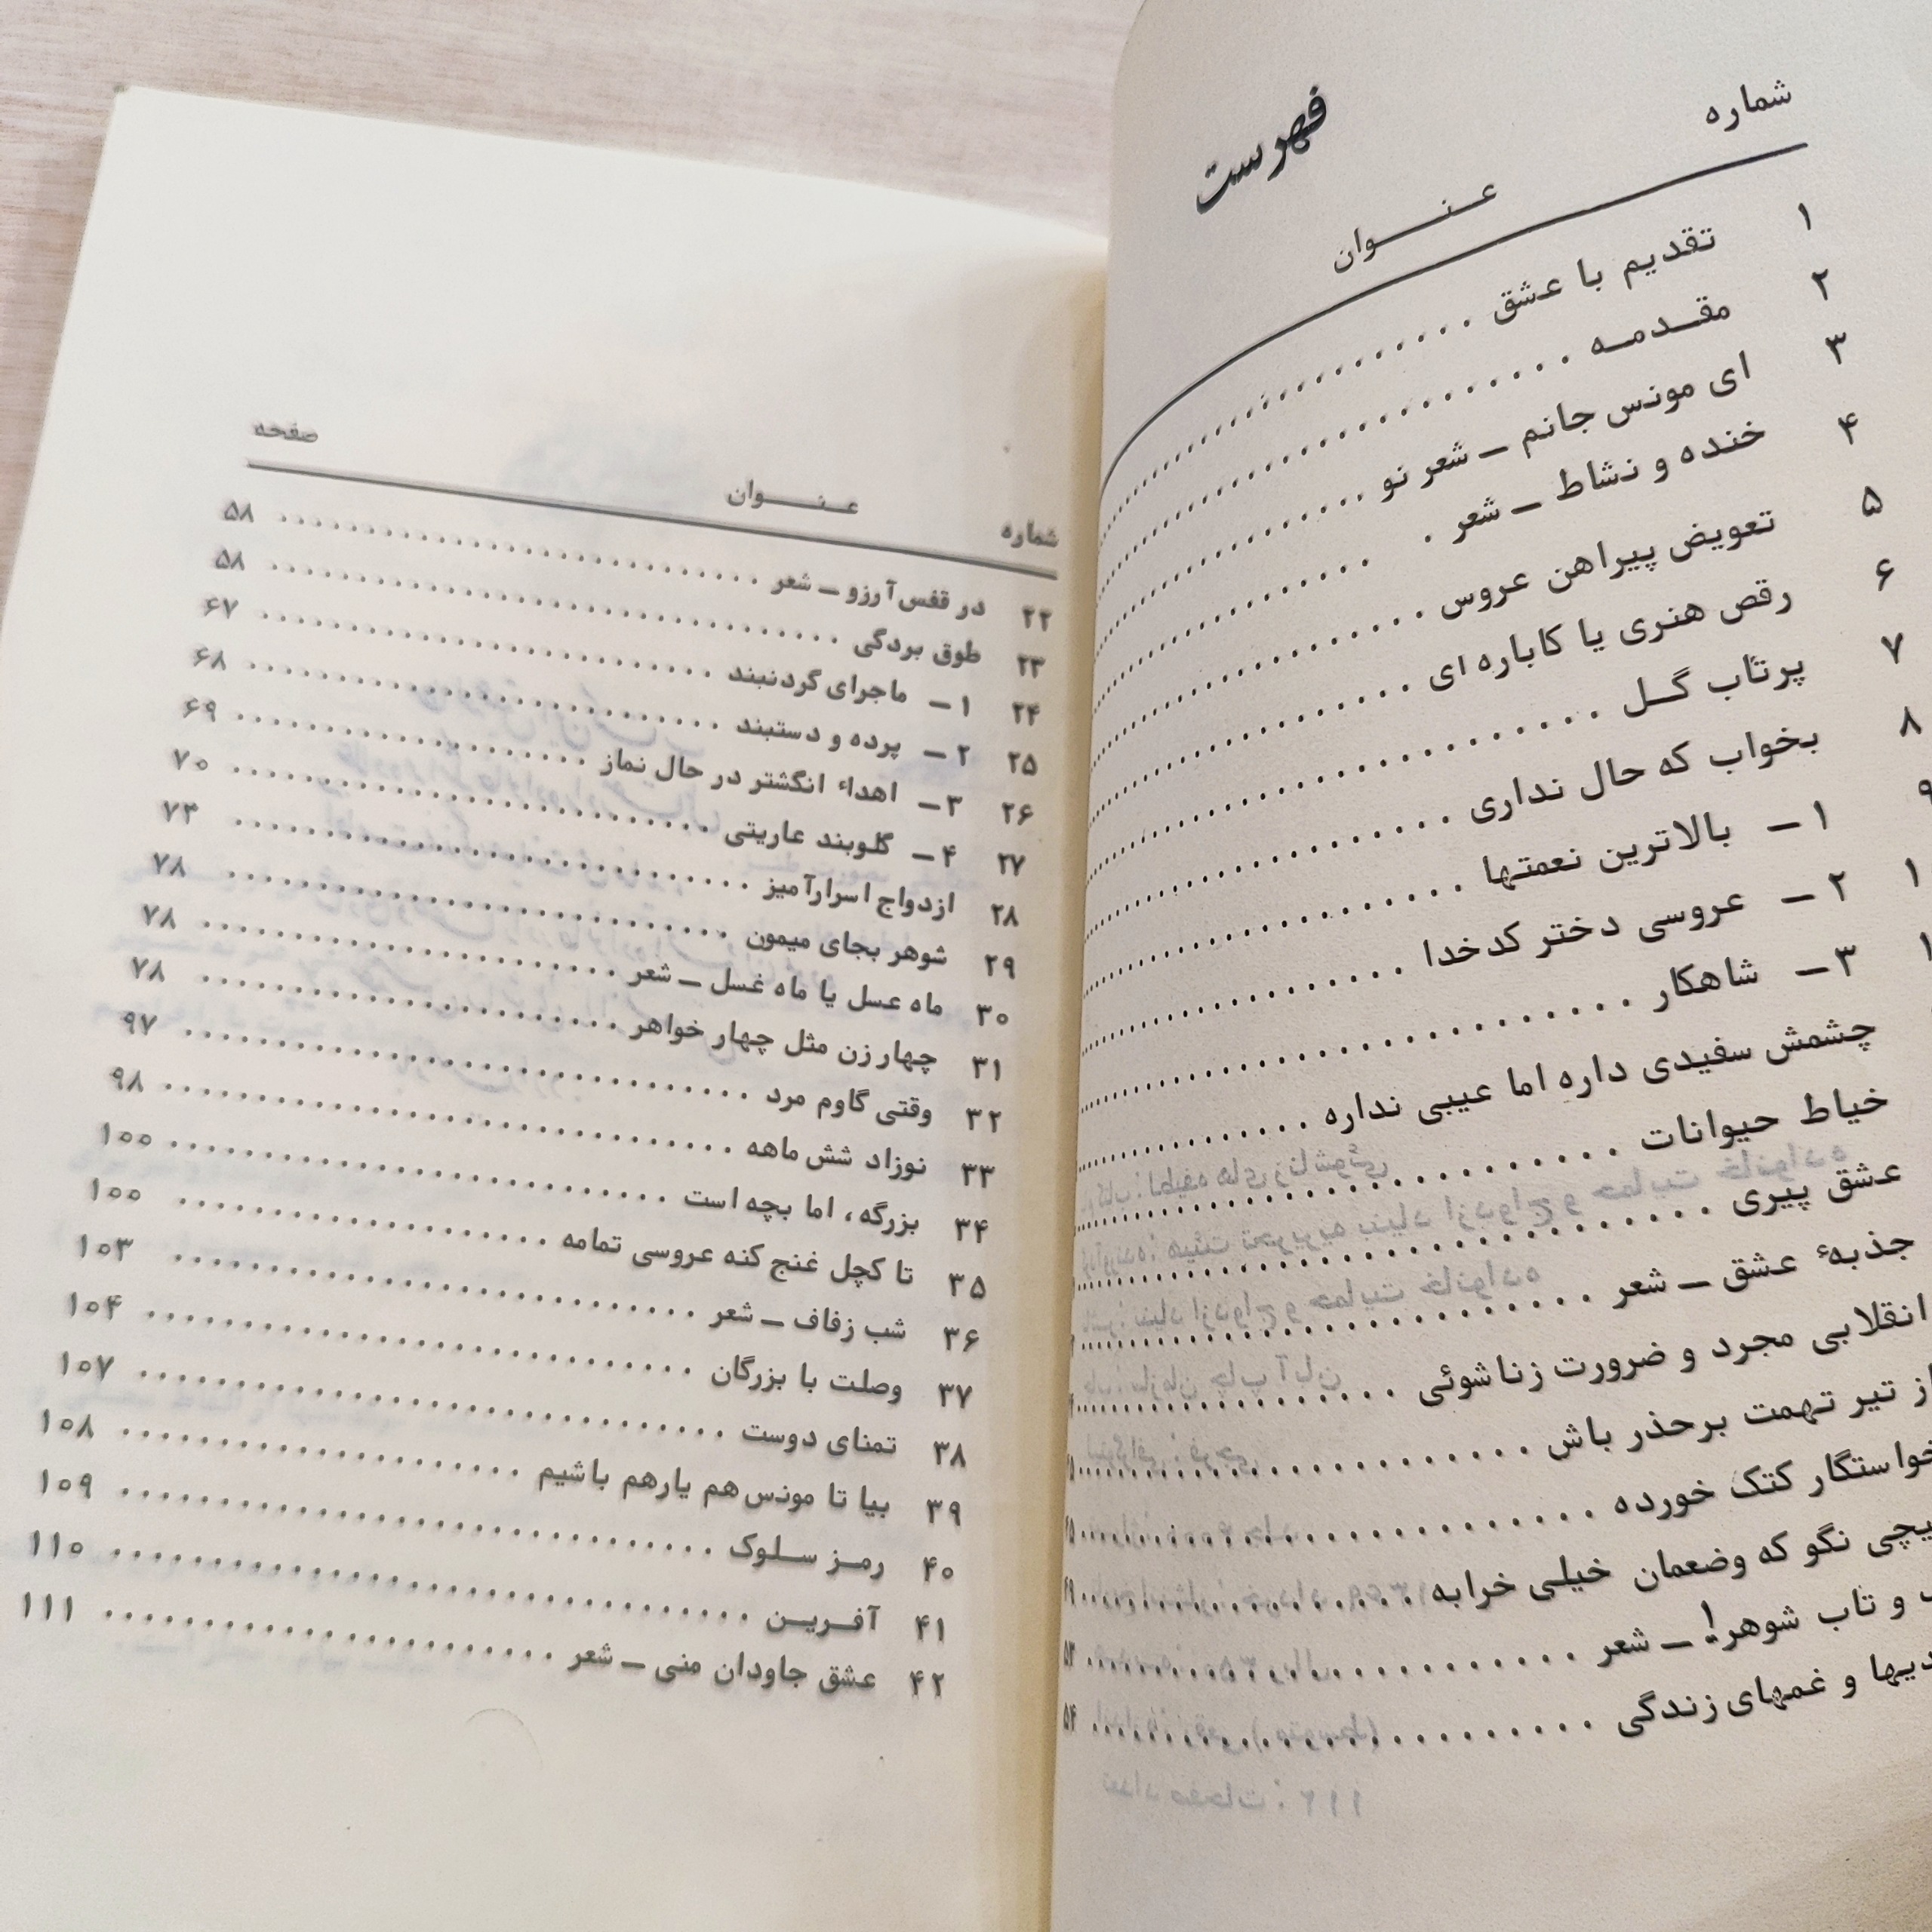 فهرست
شماره
عنوان
۱ تقدیم با عشق
۲ مقدمه
۳ ای مونس جانم ــ شعر نو
۴ خنده و نشاط ــ شعر
۵ تعویض پیراهن عروس
۶ رقص هنری یا کاباره ای
۷ پرتاب گل
۸ بخواب که حال نداری
۹ ۱ ــ بالاترین نعمتها
۲ ــ عروسی دختر کدخدا
۳ ــ شاهکار
چشمش سفیدی داره اما عیبی نداره
خیاط حیوانات
عشق پیری
جذبهٔ عشق ــ شعر
انقلابی مجرد و ضرورت زناشوئی
از تیر تهمت برحذر باش
خواستگار کتک خورده
نگو که وضعمان خیلی خرابه
و تاب شوهر! ــ شعر
و غمهای زندگی
شماره عنوان صفحه
۲۲ در قفس آرزو ــ شعر ۵۸
۲۳ طوق بردگی ۵۸
۲۴ ۱ ــ ماجرای گردنبند ۶۷
۲۵ ۲ ــ پرده و دستبند ۶۸
۲۶ ۳ ــ اهداء انگشتر در حال نماز ۶۹
۲۷ ۴ ــ گلوبند عاریتی ۷۰
۲۸ ازدواج اسرارآمیز ۷۳
۲۹ شوهر بجای میمون ۷۸
۳۰ ماه عسل یا ماه غسل ــ شعر ۷۸
۳۱ چهار زن مثل چهار خواهر ۷۸
۳۲ وقتی گاوم مرد ۹۷
۳۳ نوزاد شش ماهه ۹۸
۳۴ بزرگه، اما بچه است ۱۰۰
۳۵ تا کچل غنج کنه عروسی تمامه ۱۰۰
۳۶ شب زفاف ــ شعر ۱۰۳
۳۷ وصلت با بزرگان ۱۰۴
۳۸ تمنای دوست ۱۰۷
۳۹ بیا تا مونس هم یار هم باشیم ۱۰۸
۴۰ رمز سلوک ۱۰۹
۴۱ آفرین ۱۱۰
۴۲ عشق جاودان منی ــ شعر ۱۱۱